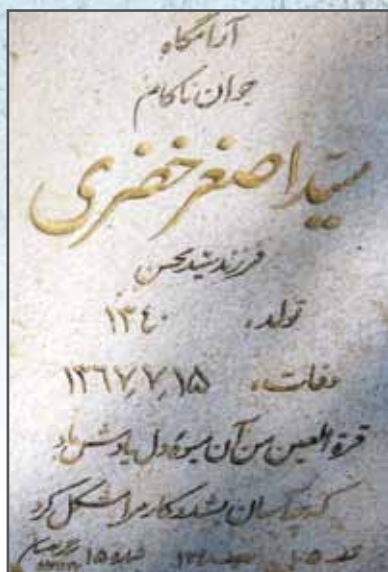 آرامگاه
جوان ناکام
سید اصغر خضری
فرزند سید محسن
تولد، ۱۳٤۰
وفات، ۱۳۶۷٫۷٫۱۵
قرة العین من آن میوهٔ دل یادش باد
که چه آسان بشد و کار مرا مشکل کرد
قطعه ۱۰۵ شماره ۱۵